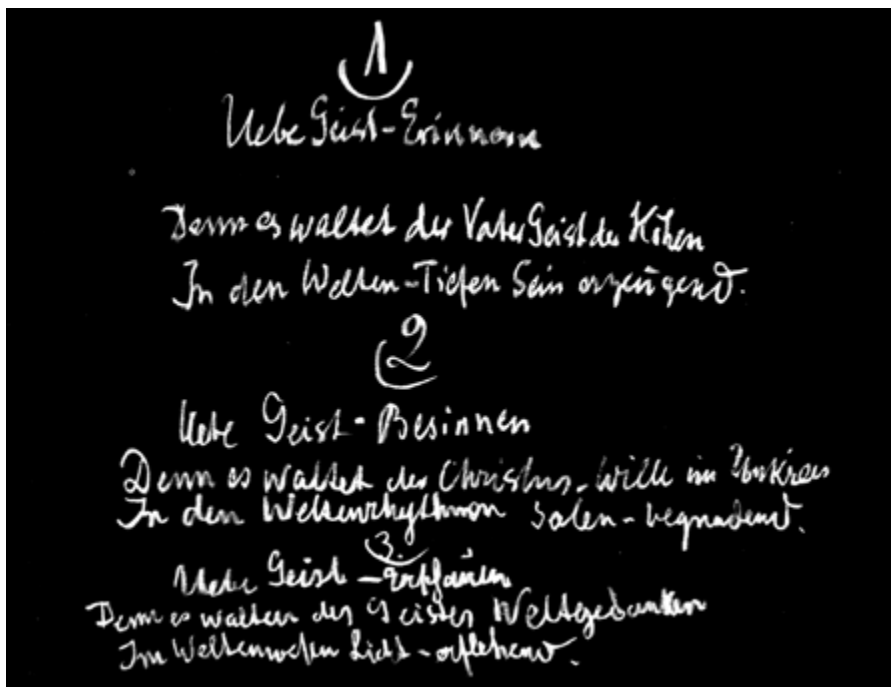 1
Uebe Geist-Erinnern
Denn es waltet der Vater Geist der Höhen
In den Welten-Tiefen Sein erzeugend.
2
Uebe Geist-Besinnen
Denn es waltet der Christus-Wille im Umkreis
In den Weltenrhythmen Seelen-begnadend.
3.
Uebe Geist-Erschauen
Denn es walten des Geistes Weltgedanken
Im Weltenwesen Licht-erflehend.